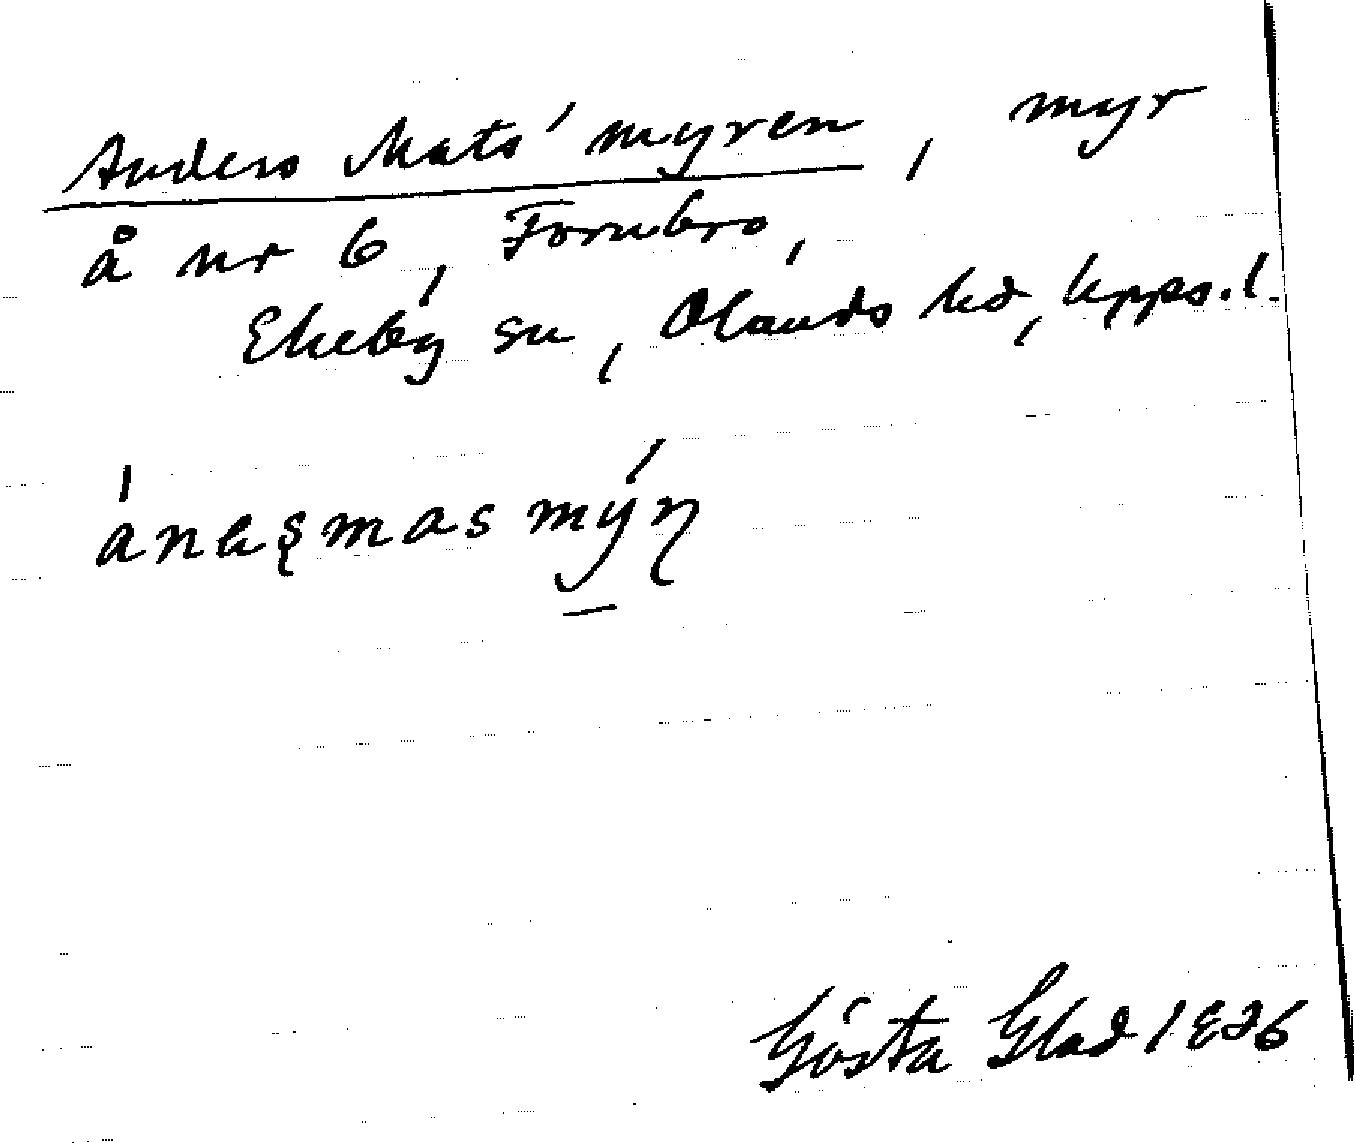 Anders Mats' myren, myr
å nr 6, Fornbro,
Ekeby sn, Olands hd, Upps.l.
ánaşmas mýn̡
Gösta Glad 1826